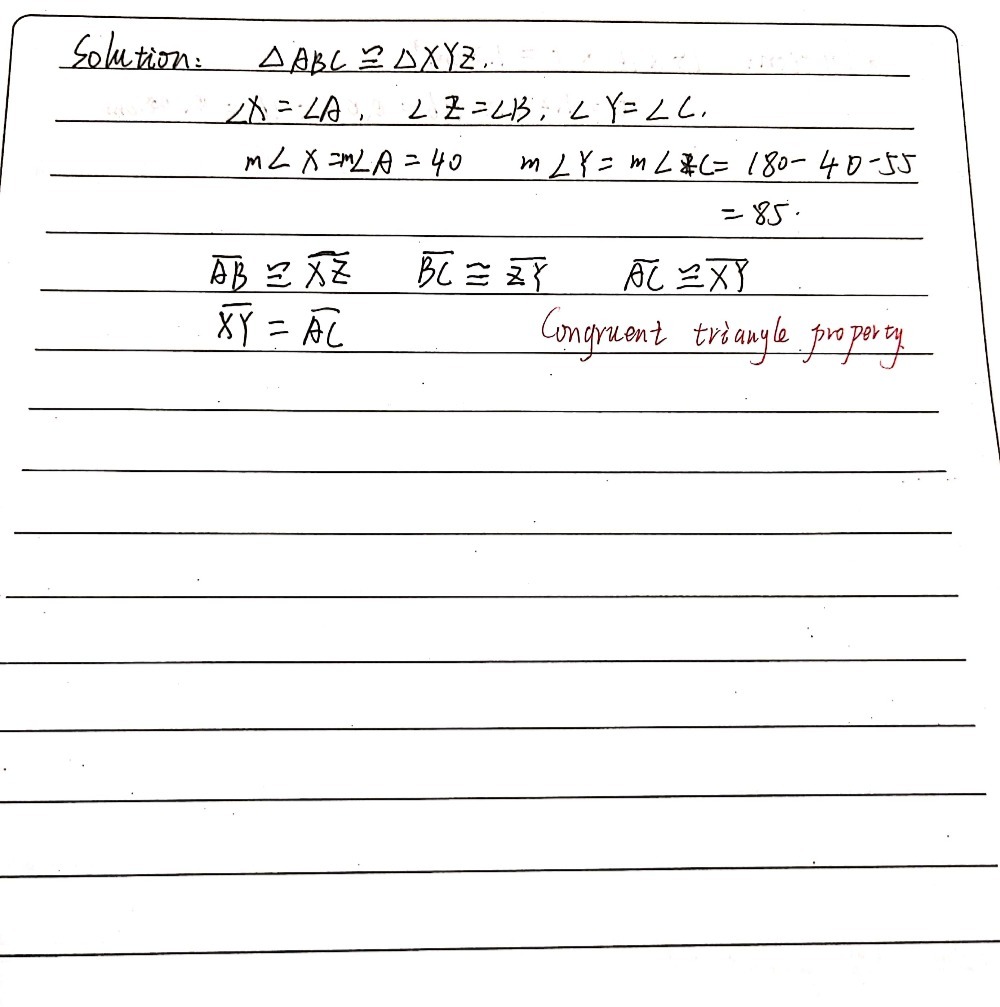 Solution: △ABC ≅ △XYZ.
∠X = ∠A, ∠Z = ∠B, ∠Y = ∠C.
m∠X = m∠A = 40 m∠Y = m∠C = 180 - 40 - 55
= 85.
A̅B̅ ≅ X̅Z̅ B̅C̅ ≅ Z̅Y̅ A̅C̅ ≅ X̅Y̅
X̅Y̅ = A̅C̅ Congruent triangle property